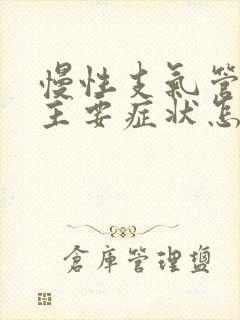 慢性支氣管
主要症狀怎
倉庫管理鹽